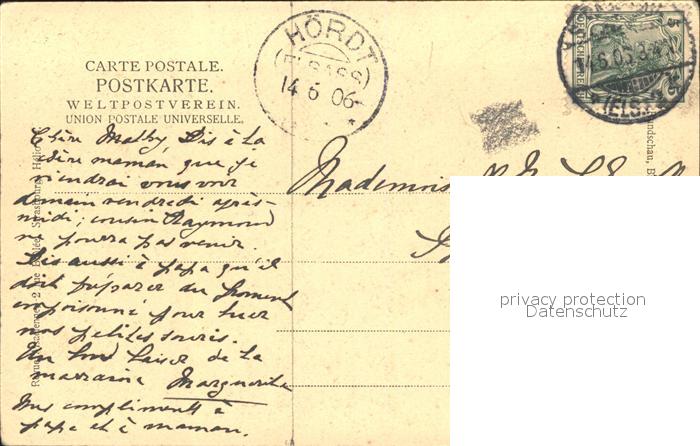 CARTE POSTALE.
POSTKARTE.
WELTPOSTVEREIN.
UNION POSTALE UNIVERSELLE.
HÖRDT
(ELSASS)
14 6 06
5
14.6.06.3-4N
(ELS.)
Chère Mathy, Dis à ta
chère maman que je
viendrai vous voir
demain vendredi après-
midi; cousin Raymond
ne pourra pas venir.
Dis aussi à papa qu'il
doit préparer du froment
empoisonné pour tuer
nos petites souris.
Un bon baiser de ta
marraine Marguerite
Mes compliments à
papa et à maman.
Mademois
privacy protection
Datenschutz